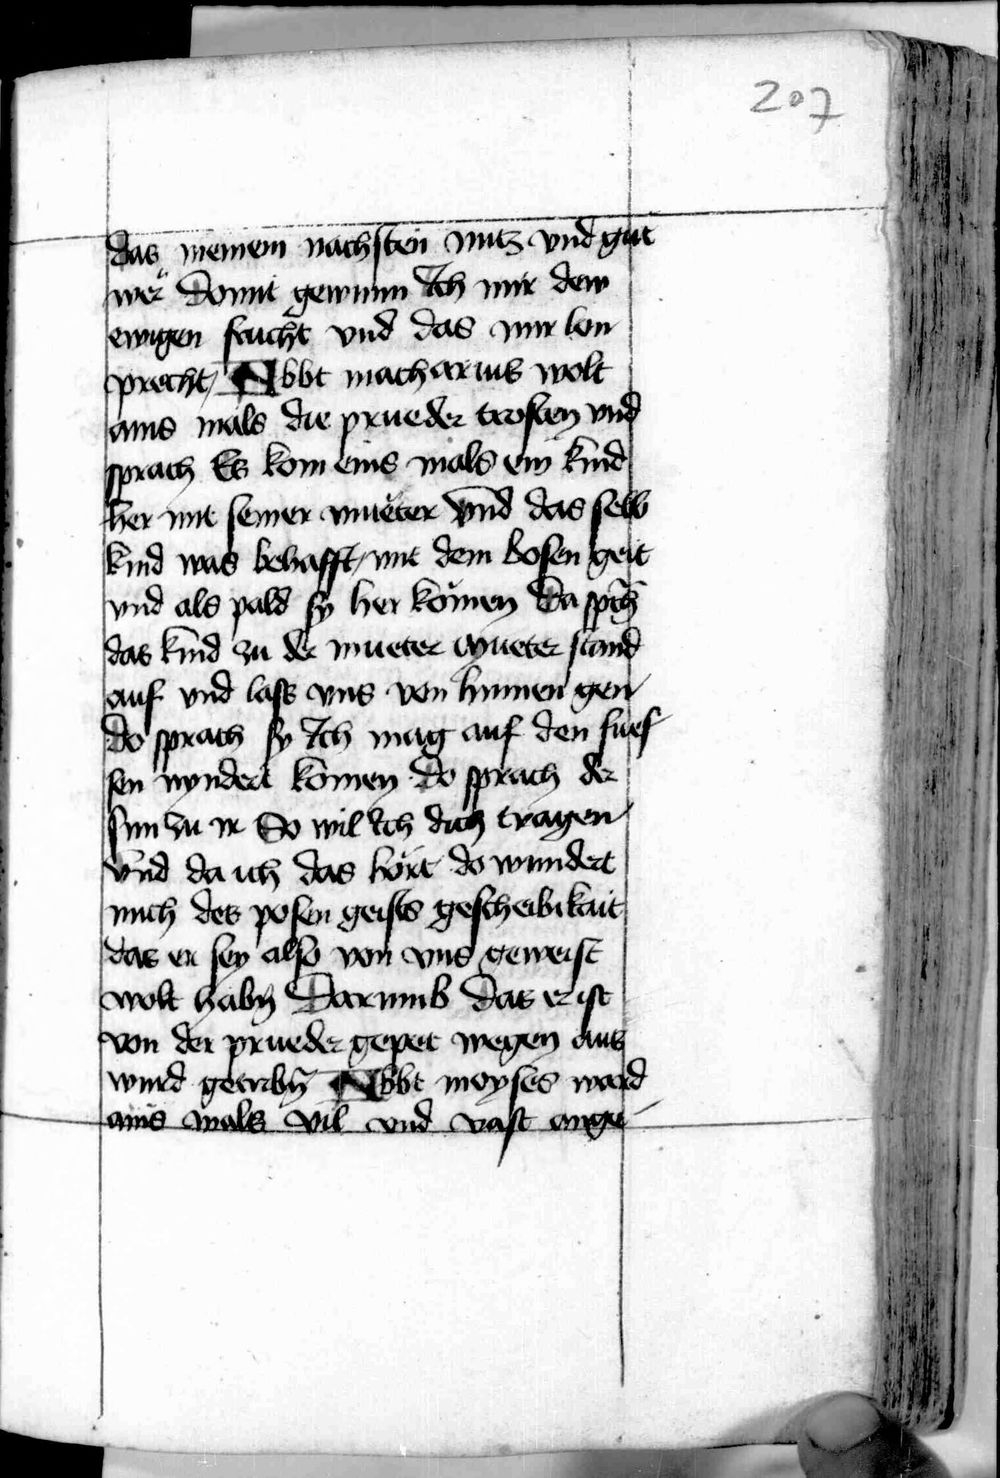 207
das meinem nachsten nutz vnd gut
wer Domit gewinn Ich mir dew
ewigen frucht vnd das mir lon
precht / Abbt macharius wolt
ains mals die prueder trosten vnd
sprach Es kom eins mals ein kind
her mit seiner mueter Vnd das selb
kind was behafft / mit dem bosen geit
vnd als pald sy her komen Da spch
das kind zu der mueter mueter stand
auf vnd lass vns von hinnen gen
Do sprach sy Ich mag auf den fues
sen nyndert komen Do sprach der
sun zu ir So wil Ich dich tragen
Vnd da ich das hört do wundert
mich des posen geists gescheibikait
das er sey also von vns geweist
wolt habn Darumb das er ist
von der prueder gepet wegen aus
wurd getribn Abbt moyses ward
ains mals vil vnd vast ange